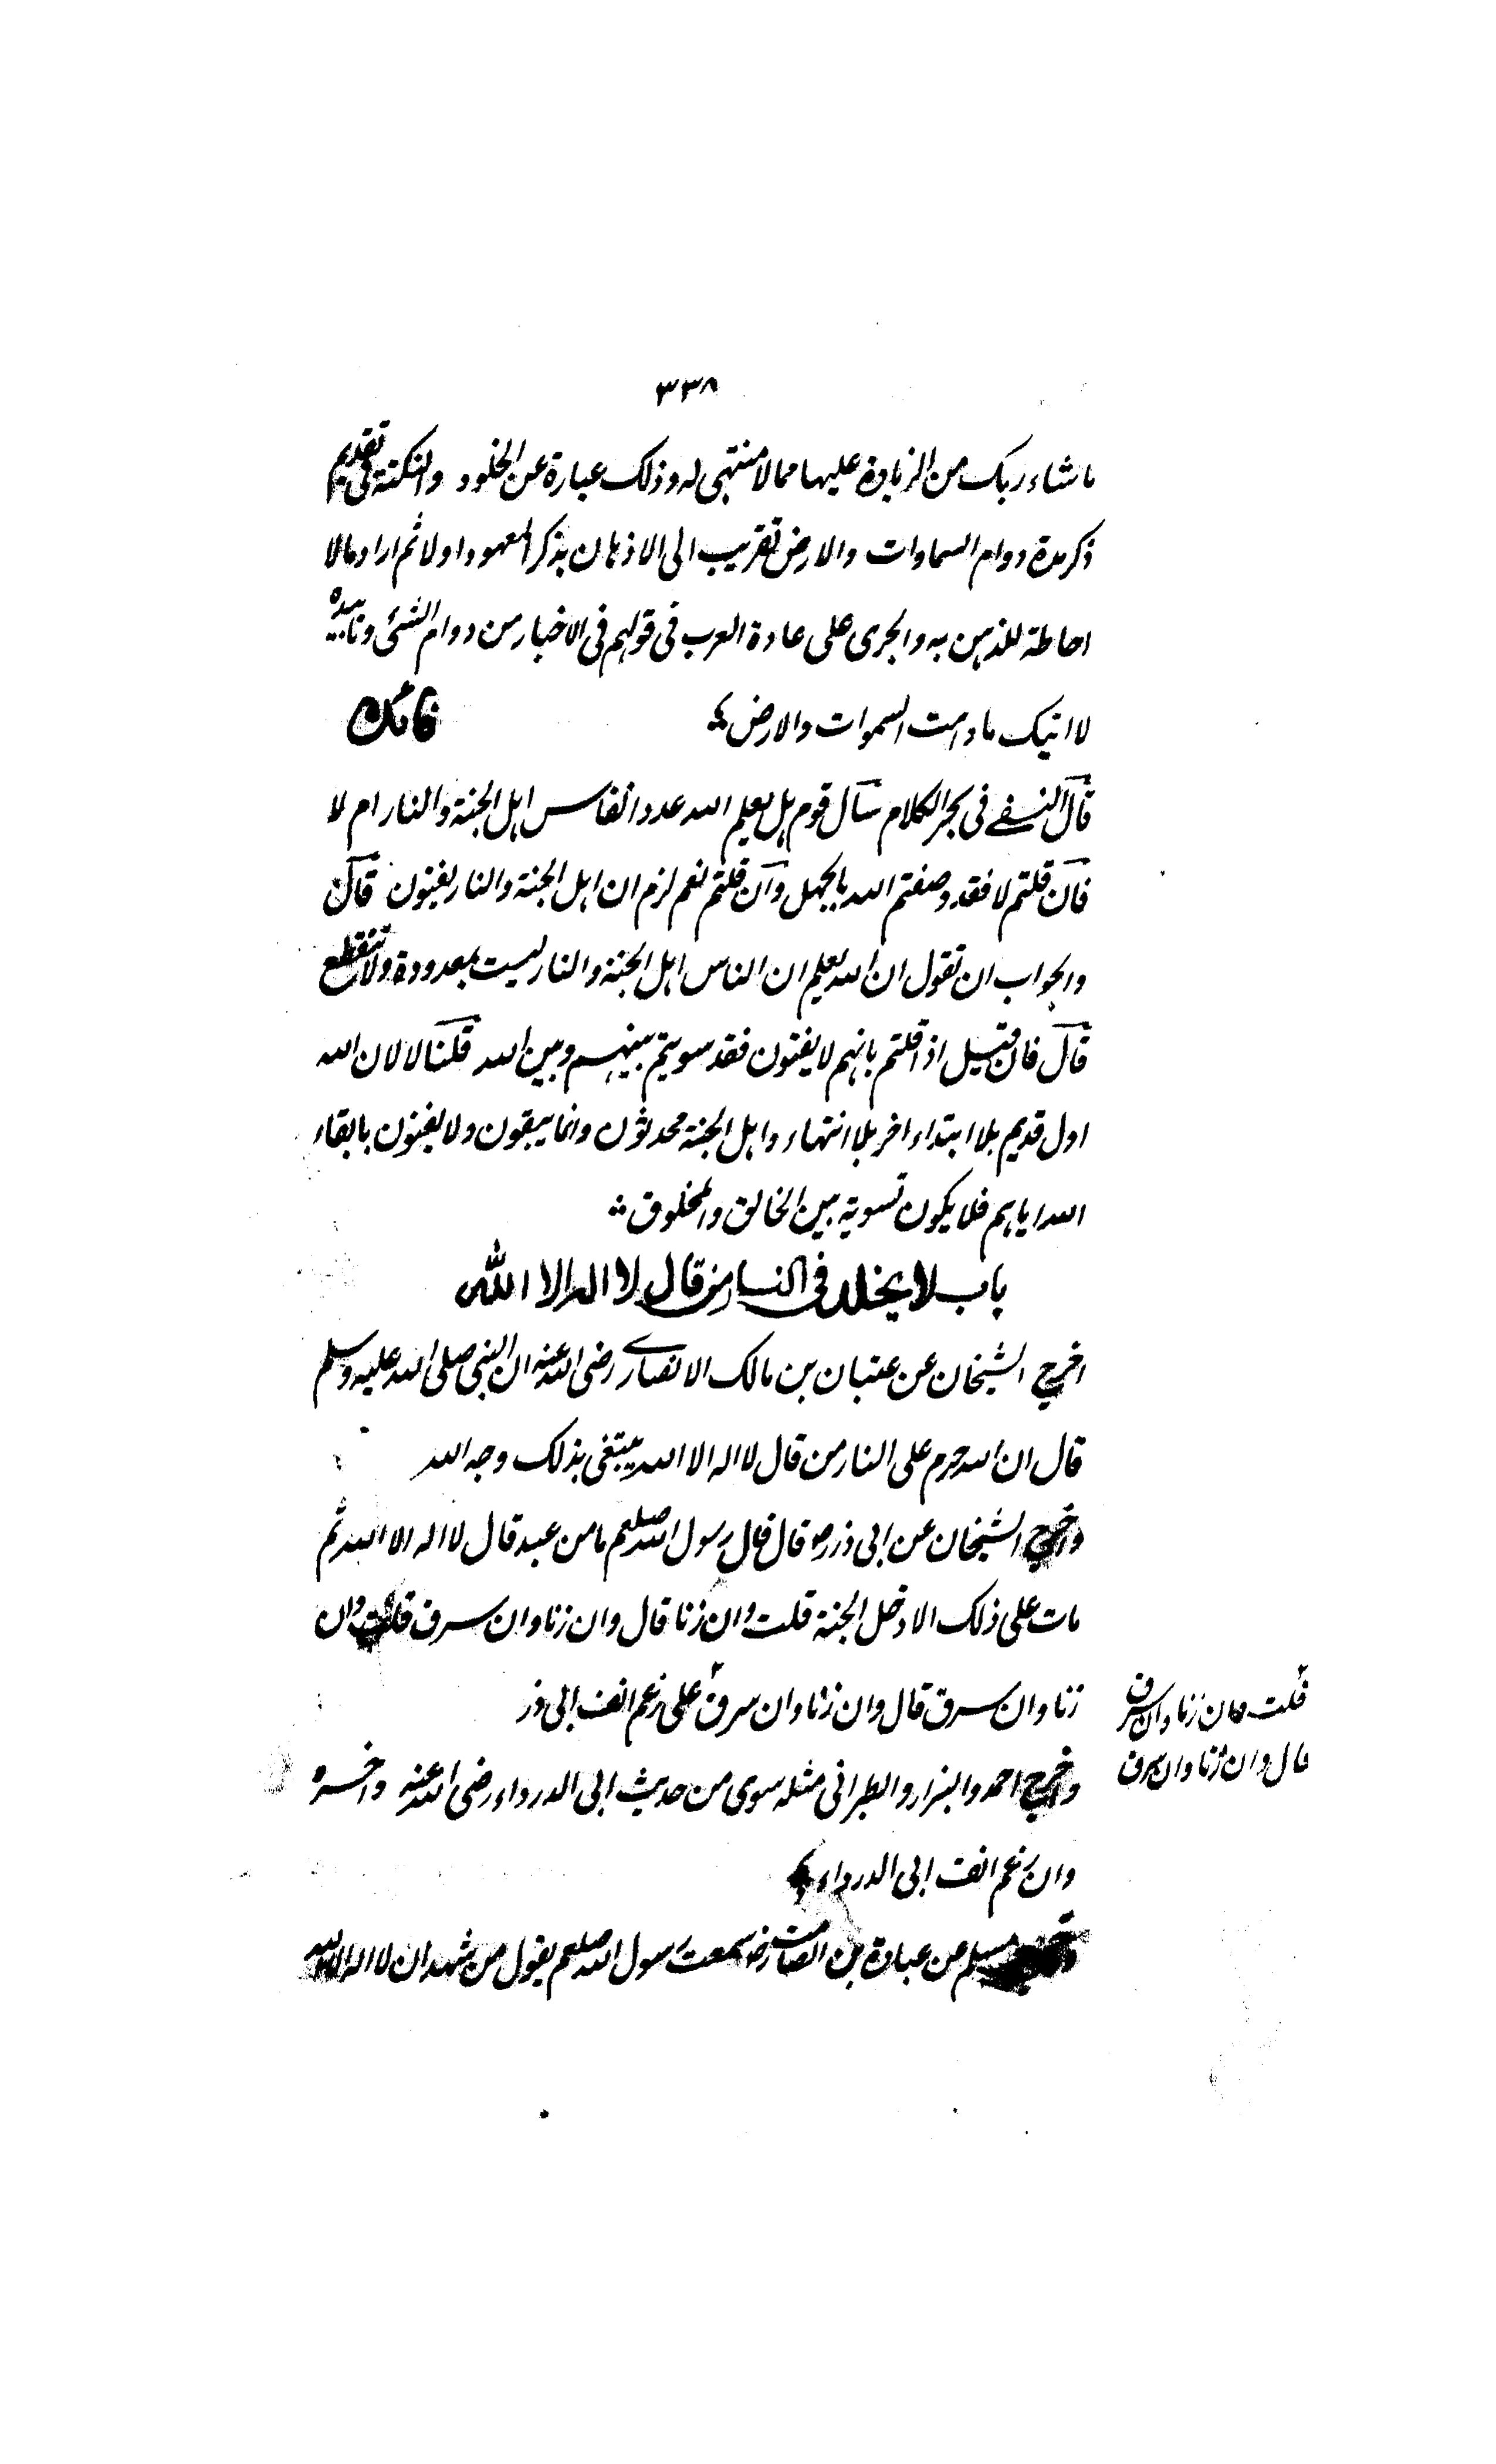 ٣٣٨
ماشاء ربك من الزيادة عليها مما لا منتهى له وذلك عبارة عن الخلود والنكتة فى تقديم
ذكر مدة دوام السماوات والارض تقريب الى الاذهان بذكر المعهود اولا ثم اراد مالا
احاطة للذهن به والجرى على عادة العرب فى قولهم فى الاخبار من دوام الشئ وتابيده
لا اتيك مادامت السموات والارض
قال النسفے فى بحر الكلام سأل قوم هل يعلم الله عدد انفاس اهل الجنة والنار ام لا
فان قلتم لا فقد وصفتم الله بالجهل وان قلتم نعم لزم ان اهل الجنة والنار يفنون قال
والجواب ان تقول ان الله يعلم ان الناس اهل الجنة والنار ليست بمعدودة ولا تنقطع
قال فان قيل اذا قلتم بانهم لا يفنون فقد سويتم بينهم وبين الله قلنا لا لان الله
اول قديم بلا ابتداء اخر بلا انتهاء واهل الجنة محدثون وانما يبقون ولا يفنون بابقاء
الله اياهم فلا يكون تسوية بين الخالق والمخلوق
باب لا يخلد فى النار من قال لا اله الا الله
اخرج الشيخان عن عتبان بن مالك الانصارے رضى الله عنه ان النبى صلى الله عليه وسلم
قال ان الله حرم على النار من قال لا اله الا الله يبتغى بذلك وجه الله
واخرج الشيخان عن ابى ذر رض قال قال رسول الله صلعم ما من عبد قال لا اله الا الله ثم
مات على ذلك الا دخل الجنة قلت وان زنا قال وان زنا وان سرق قلت وان
زنا وان سرق قال وان زنا وان سرق على رغم انف ابى ذر
قلت وان زنا وان سرق
قال وان زنا وان سرق
واخرج احمد والبزار والطبرانى مثله سوى من حديث ابى الدرداء رضى الله عنه واخره
وان رغم انف ابى الدرداء
مسلم عن عبادة بن الصامت رض سمعت رسول الله صلعم يقول من شهد ان لا اله الا الله